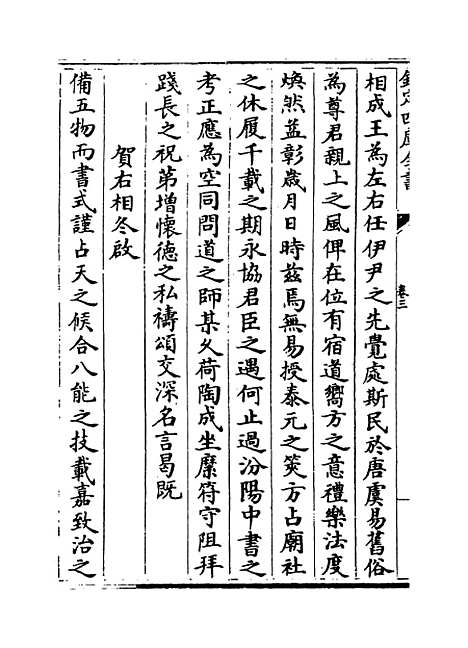 欽定四庫全書
卷三
相成王為左右任伊尹之先覺處斯民於唐虞易舊俗
為尊君親上之風俾在位有宿道嚮方之意禮樂法度
煥然益彰歲月日時茲焉無易授泰元之筴方占廟社
之休履千載之期永協君臣之遇何止過汾陽中書之
考正應為空同問道之師某乆荷陶成坐縻符守阻拜
踐長之祝苐增懷德之私禱頌交深名言曷既
賀右相冬啟
備五物而書式謹占天之候合八能之技載嘉致治之